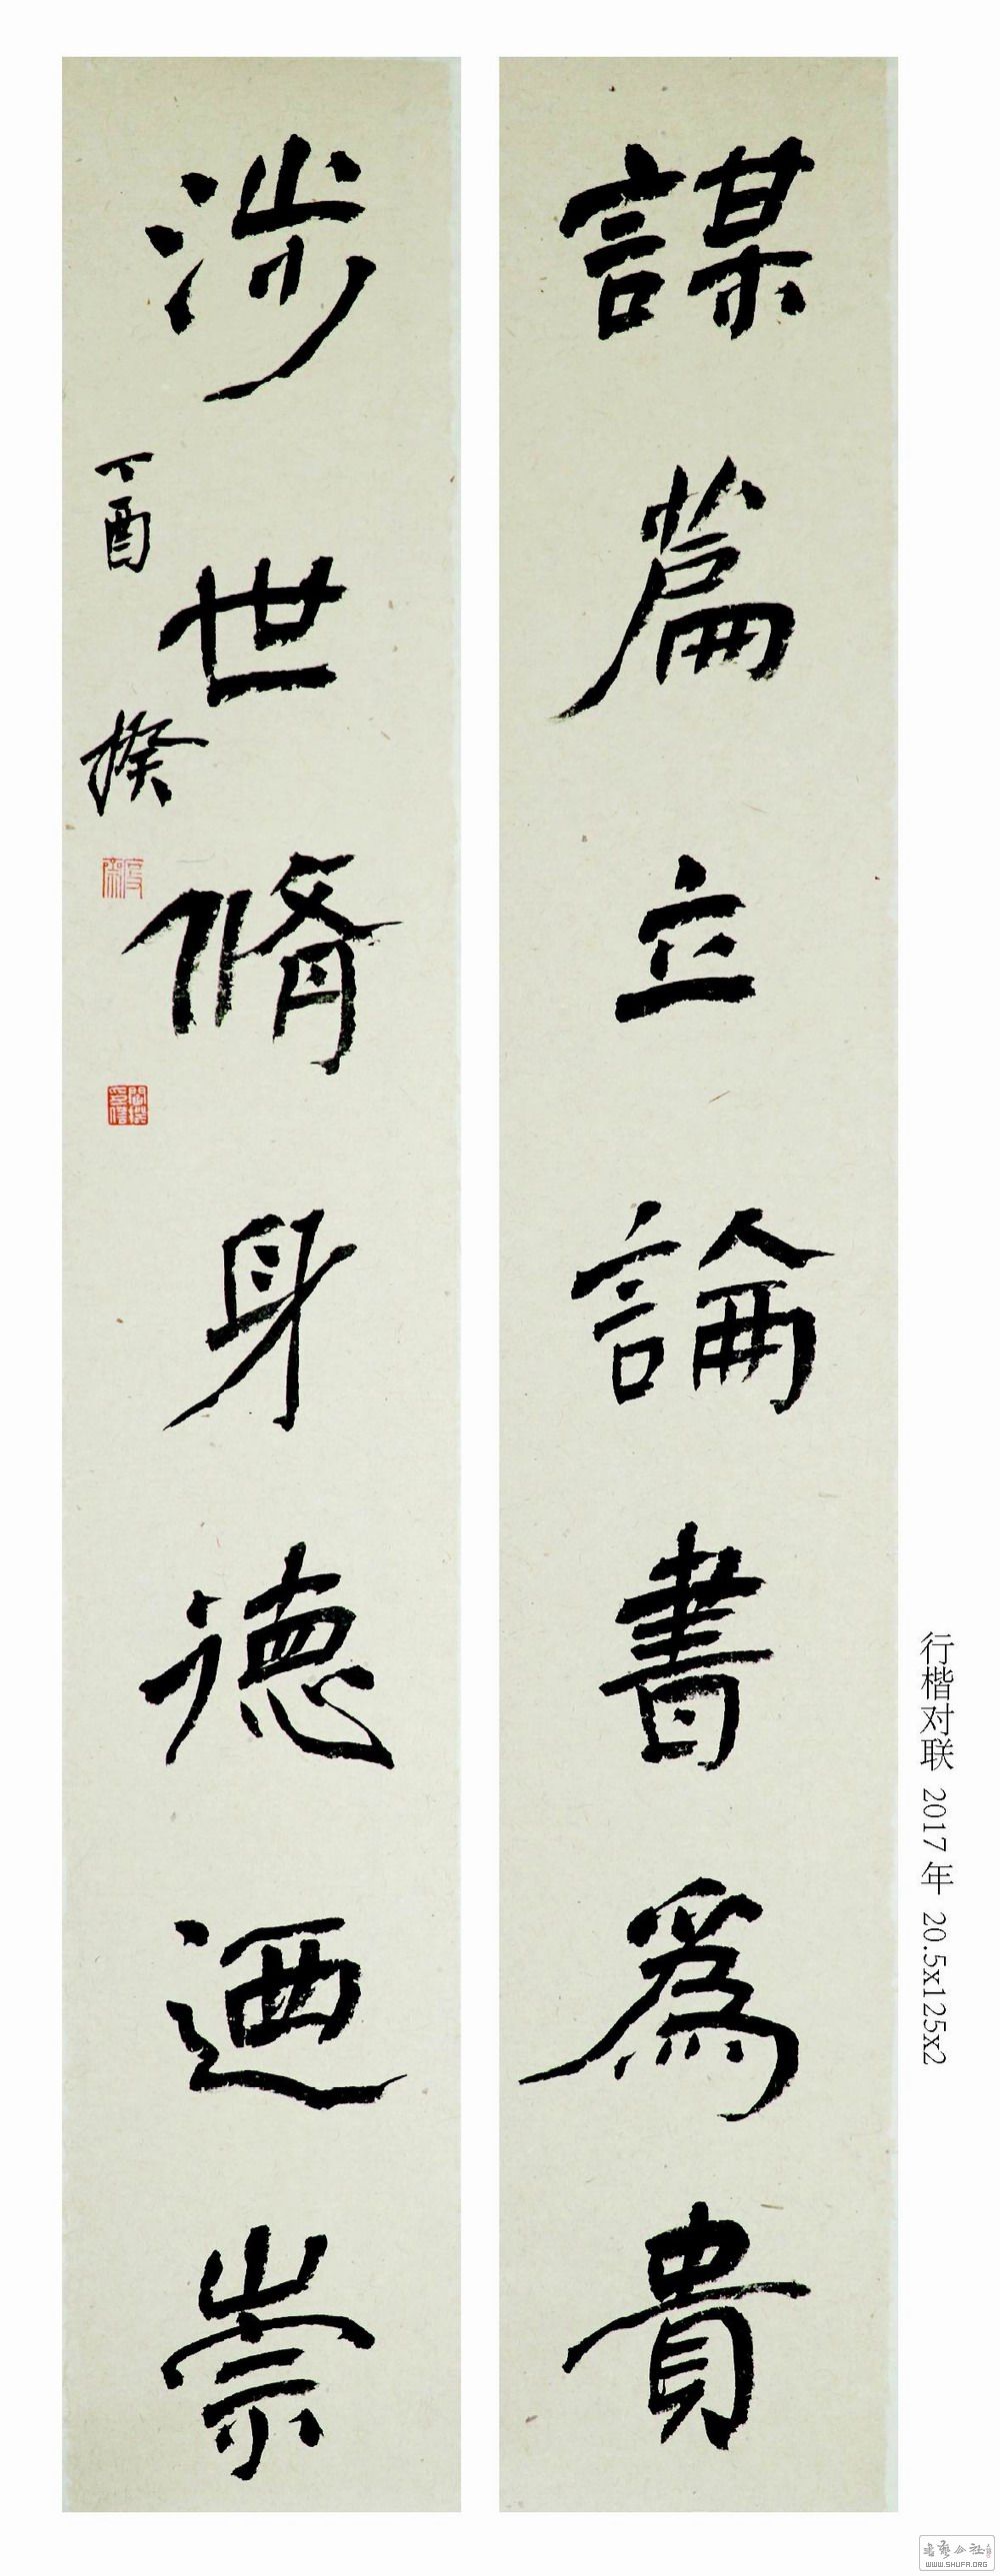 謀篇立論書爲貴
涉世脩身德迺崇
丁酉 揆
行楷对联 2017年 20.5x125x2
WWW.SHUFA.ORG